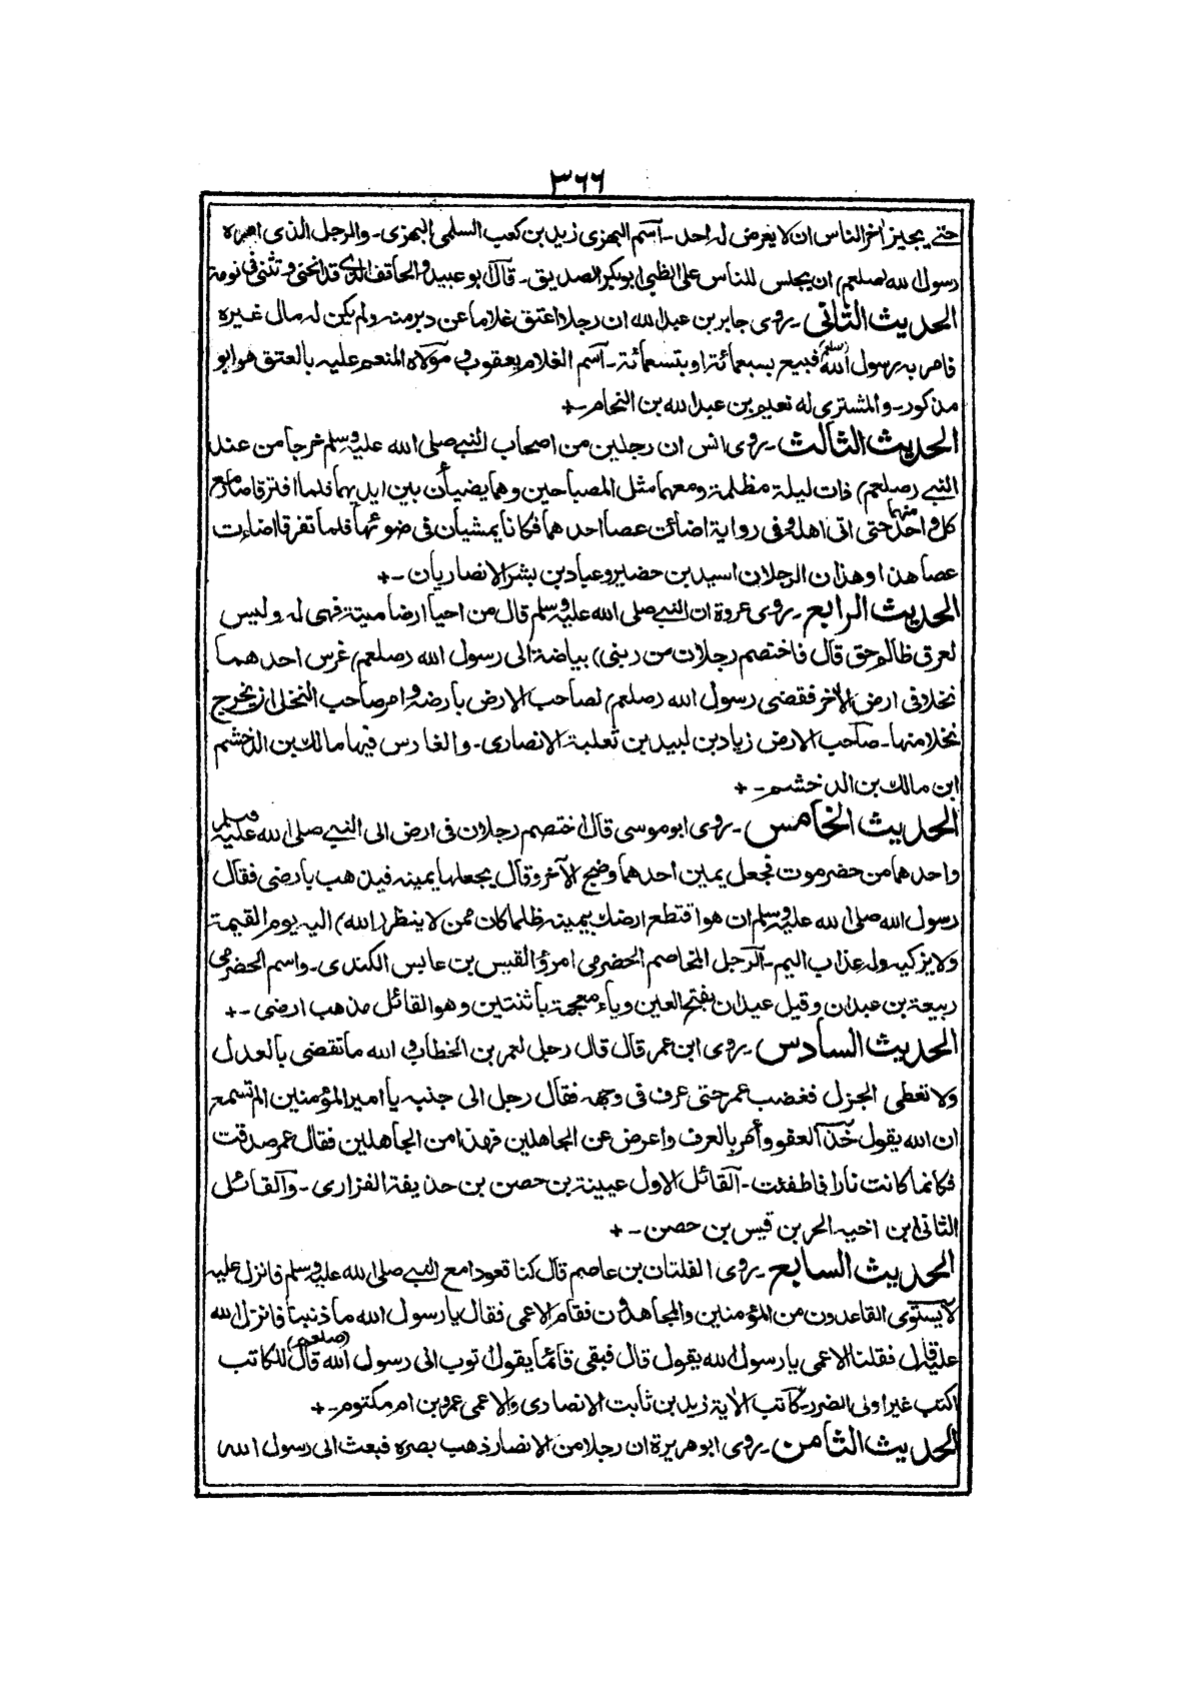 ٣٦٦
حتى يجيز اخر الناس ان لا يعرض له احد۔ اسم البهزى زيد بن كعب السلمى البهزى۔ والرجل الذى امره
رسول الله (صلعم) ان يجلس للناس على الظبى ابوبكر الصديق۔ قال ابو عبيد والحاقف الذى قد انحنى وتثنى فى نومه
الحديث الثانى۔ روى جابر بن عبد الله ان رجلا اعتق غلاما عن دبر منه ولم يكن له مال غيره
فامر به رسول الله (صلعم) فبيع بسبعمائة او بتسعمائة۔ اسم الغلام يعقوب و مولاه المنعم عليه بالعتق هو ابو
مذكور۔ والمشترى له نعيم بن عبد الله بن النحام۔+
الحديث الثالث۔ روى انس ان رجلين من اصحاب النبى صلى الله عليه وسلم خرجا من عند
النبى (صلعم) ذات ليلة مظلمة ومعهما مثل المصباحين وهما يضيأن بين ايديهما فلما افترقا صار مع
كل واحد منهما حتى اتى اهله وفى رواية اضائت عصا احدهما فكانا يمشيان فى ضوئها فلما تفرقا اضاءت
عصا هذا وهذان الرجلان اسيد بن حضير وعباد بن بشر الانصاريان۔+
الحديث الرابع۔ روى عروة ان النبى صلى الله عليه وسلم قال من احيا ارضا ميتة فهى له وليس
لعرق ظالم حق قال فاختصم رجلان من (بنى) بياضة الى رسول الله (صلعم) غرس احدهما
نخلا فى ارض الاخر فقضى رسول الله (صلعم) لصاحب الارض بارضه وامر صاحب النخل ان يخرج
نخلا منها۔ صاحب الارض زياد بن لبيد بن ثعلبة الانصارى۔ والغارس فيها مالك بن الدخشم
ابن مالك بن الدخشم۔+
الحديث الخامس۔ روى ابو موسى قال اختصم رجلان فى ارض الى النبى صلى الله عليه وسلم
واحدهما من حضرموت فجعل يمين احدهما وضج الآخر وقال يجعلها يمينه فيذهب بارضى فقال
رسول الله صلى الله عليه وسلم ان هو اقتطع ارضك بيمينه ظلما كان ممن لا ينظر (الله) اليه يوم القيمة
ولا يزكيه وله عذاب اليم۔ الرجل المخاصم الحضرمى امرؤ القيس بن عابس الكندى۔ واسم الحضرمى
ربيعة بن عبدان وقيل عيدان بفتح العين وياء معجمة باثنتين وهو القائل مذهب ارضى۔+
الحديث السادس۔ روى ابن عمر قال قال رجل لعمر بن الخطاب والله ما تقضى بالعدل
ولا تعطى الجزل فغضب عمر حتى عرف فى وجهه فقال رجل الى جنبه يا امير المؤمنين الم تسمع
ان الله يقول خذ العفو وأمر بالعرف واعرض عن الجاهلين فهذا من الجاهلين فقال عمر صدقت
فكانما كانت نارا فاطفئت۔ القائل الاول عيينة بن حصن بن حذيفة الفزارى۔ والقائل
الثانى ابن اخيه الحر بن قيس بن حصن۔+
الحديث السابع۔ روى الفلتان بن عاصم قال كنا قعودا مع النبى صلى الله عليه وسلم فانزل عليه
لا يستوى القاعدون من المؤمنين والمجاهدون فقام الاعمى فقال يا رسول الله ما ذنبنا فانزل الله
عليه فقلنا الاعمى يا رسول الله يقول قال فبقى قائما يقول توب الى رسول الله (صلعم) قال للكاتب
اكتب غير اولى الضرر كاتب الاية زيد بن ثابت الانصارى والاعمى عمرو بن ام مكتوم۔+
الحديث الثامن۔ روى ابو هريرة ان رجلا من الانصار ذهب بصره فبعث الى رسول الله